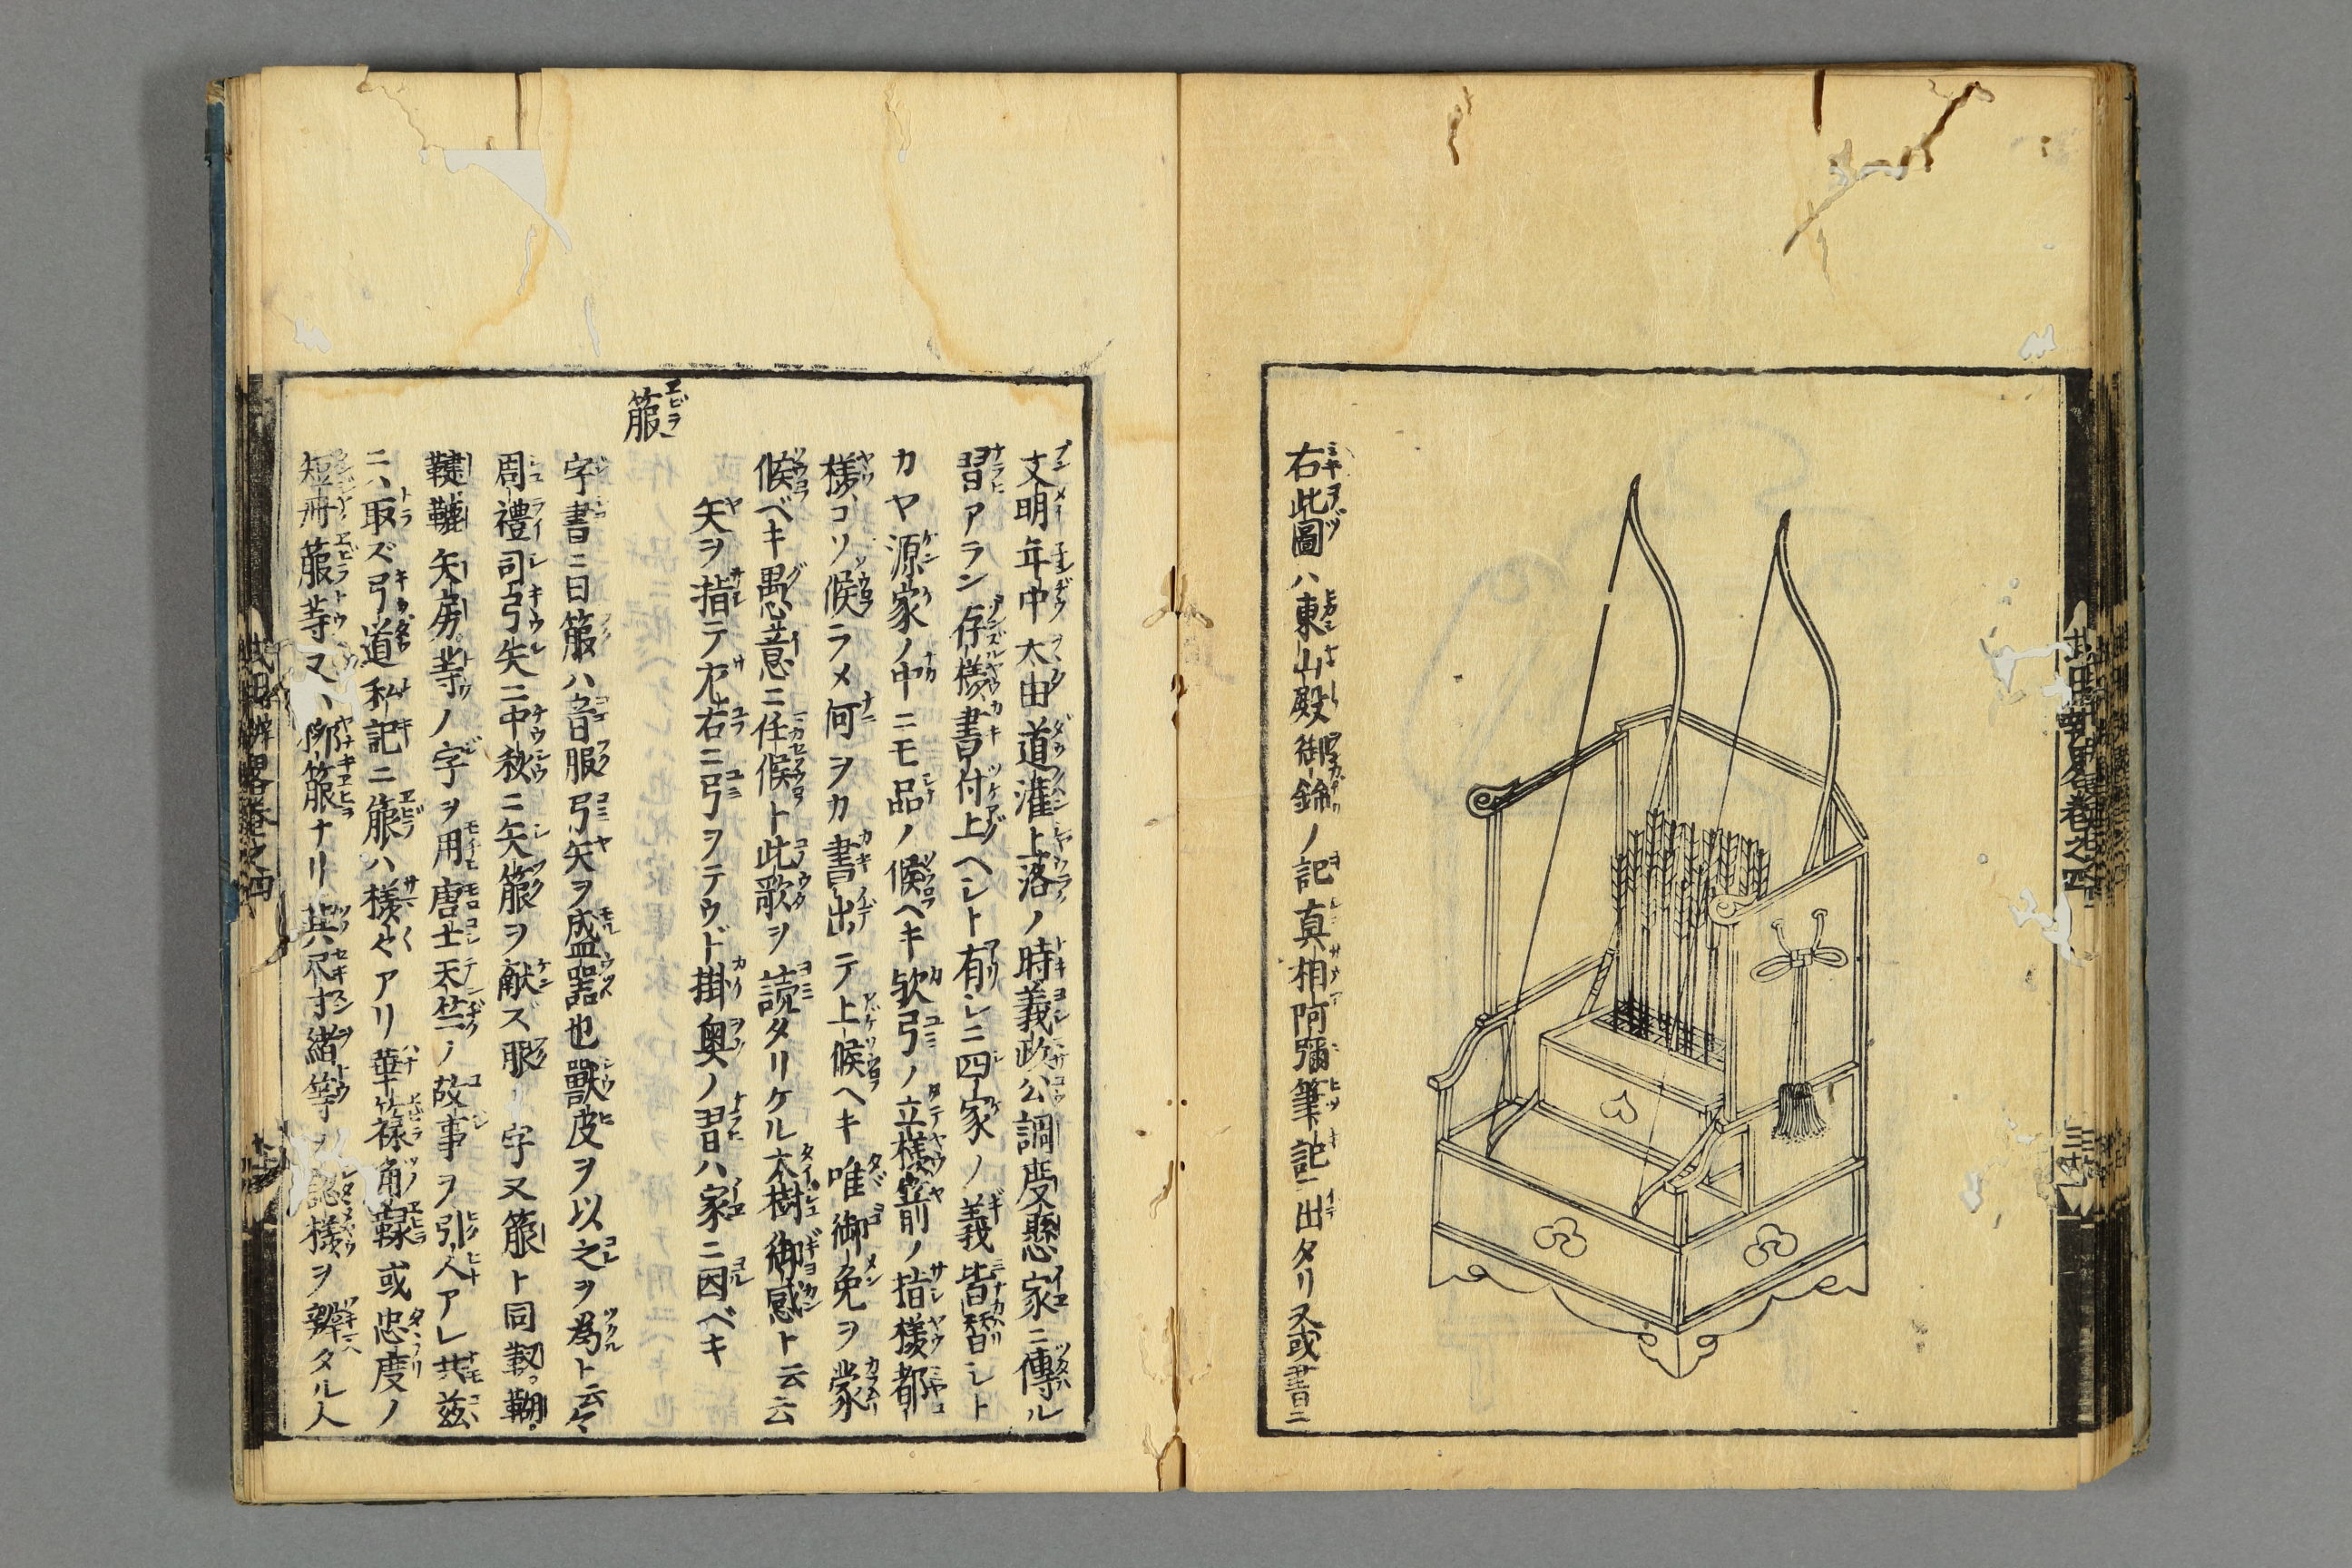 右此圖ハ東山殿御錺ノ記真相阿彌筆記ニ出タリ又或書ニ
文明年中太田道灌上落ノ時義政公調度懸家ニ傳ル
習アラン存樣書付上ヘシト有シニ四家ノ義皆暦シト
カヤ源家ノ中ニモ品ノ候ヘキ欤弓ノ立樣箭ノ指樣都
樣コソ候ラメ何ヲカ書出テ上候ヘキ唯御免ヲ蒙
候ベキ愚意ニ任候ト此歌ヲ読タリケル大樹御感ト云云
矢ヲ指テ左右ニ弓ヲテウド掛奥ノ習ハ家ニ因ベキ
箙
字書ニ曰箙ハ音服弓矢ヲ盛器也獸皮ヲ以之ヲ為ト云々
周禮司弓矢ニ中秋ニ矢箙ヲ献ズ服ノ字又箙ト同
矢房等ノ字ヲ用唐土天竺ノ故事ヲ引人アレ共茲
ニハ取ズ弓道私記ニ箙ハ樣々アリ華箙角箙或忠度ノ
短冊箙等又ハ柳箙ナリ其尺寸緒等ヲ認樣ヲ辨タル人